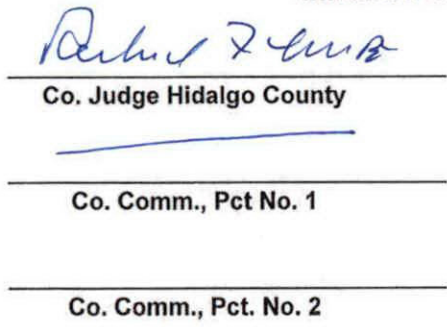 Co. Judge Hidalgo County
Co. Comm., Pct No. 1
Co. Comm., Pct. No. 2